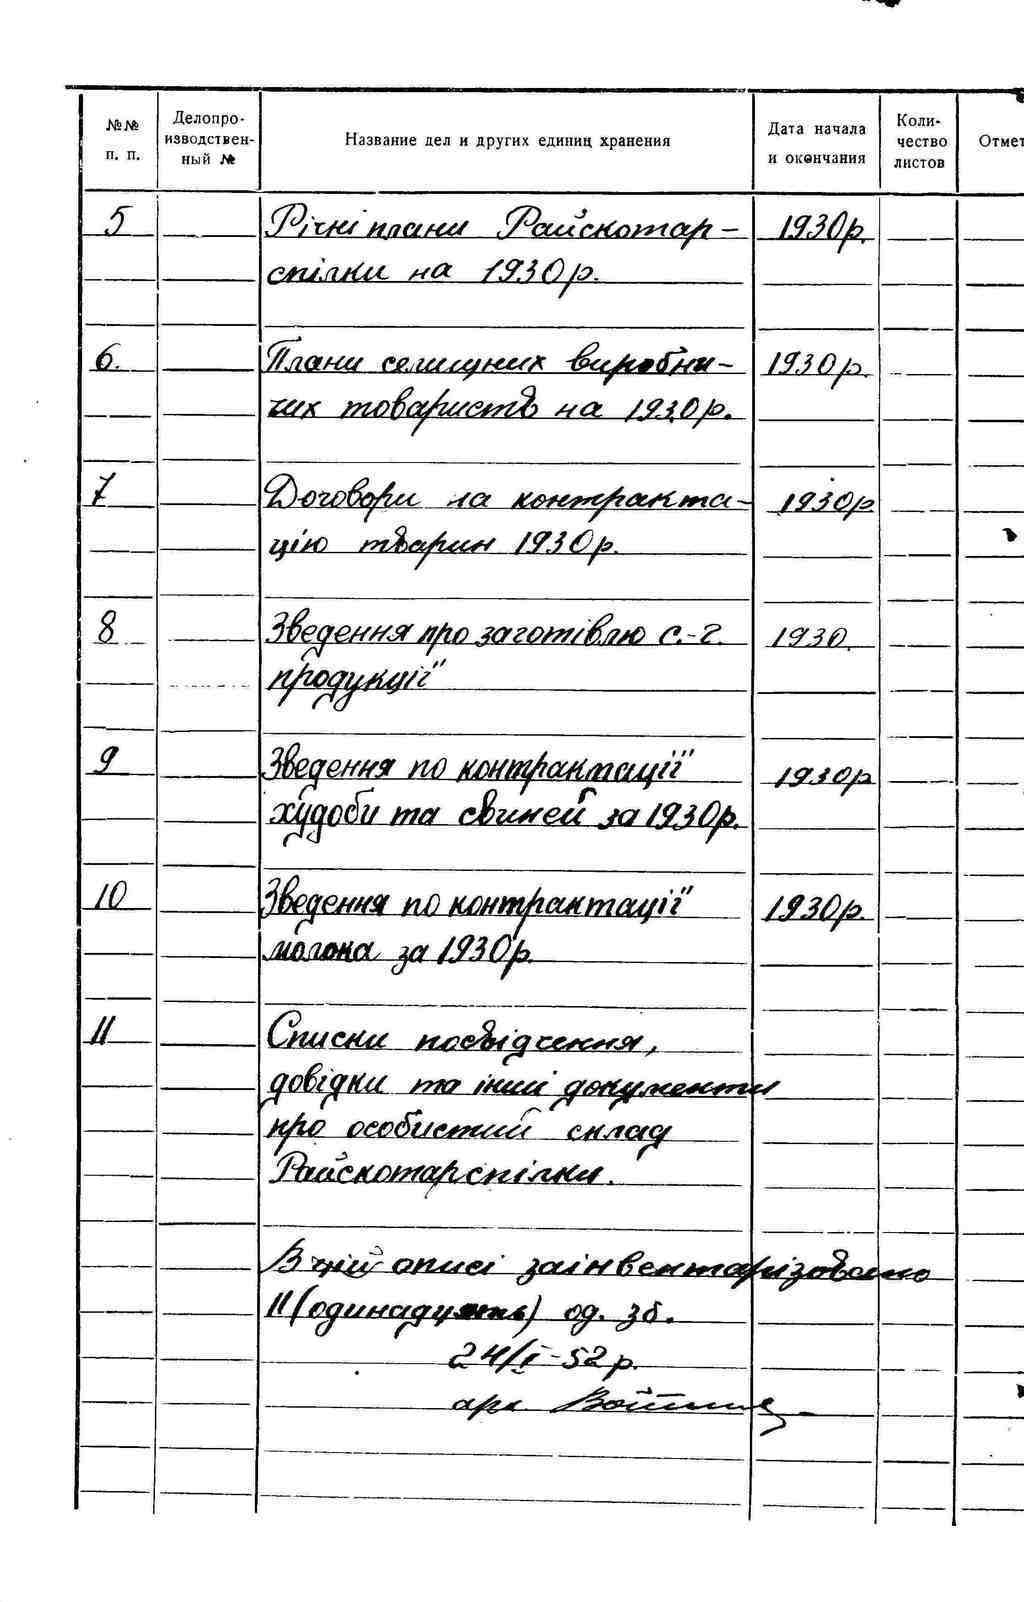 №№ п. п.
Делопро-
изводствен-
ный №
Название дел и других единиц хранения
Дата начала
и окончания
Коли-
чество
листов
Отмет
5 Річні плани Райскотар- 1930р.
спілки на 1930р.
6. Плани селищних виробни- 1930р.
чих товариств на 1930р.
7 Договори на контракта- 1930р
цію тварин 1930р.
8 Зведення про заготівлю с.-г. 1930.
продукції
9 Зведення по контрактації 1930р
худоби та свиней за 1930р.
10 Зведення по контрактації 1930р.
молока за 1930р.
11 Списки посвідчення,
довідки та інші документи
про особистий склад
Райскотарспілки.
В цій описі заінвентарізовано
11 (одинадцять) од. зб.
24/I-52р.
арх.